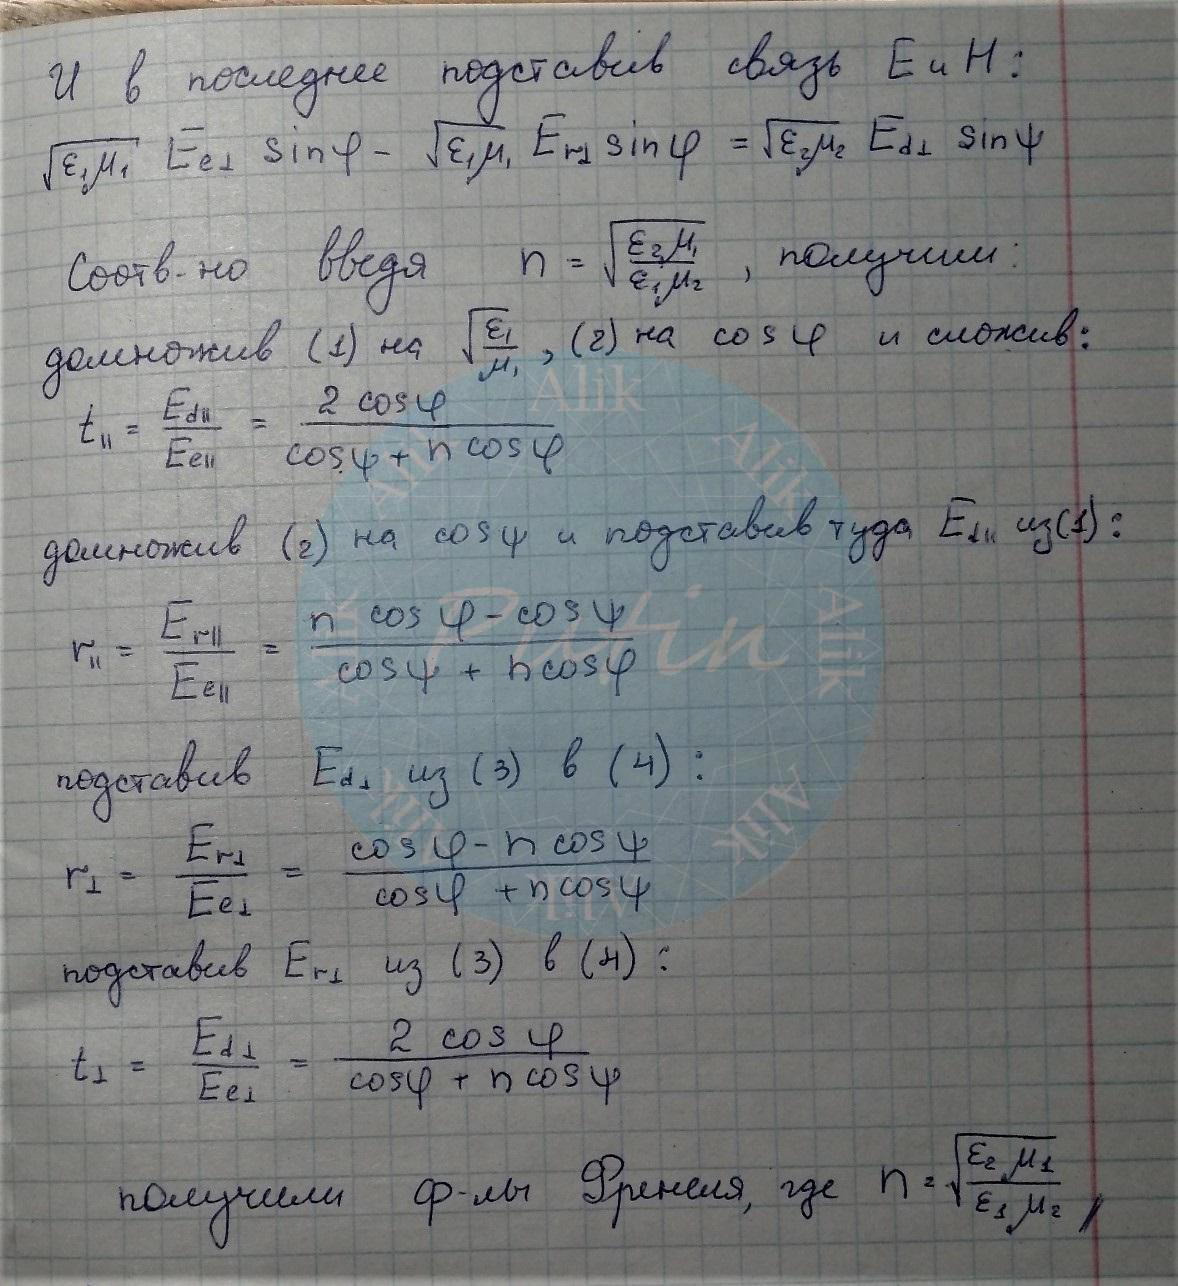 И в последнее подставив связь E и H:
√ε₁μ₁ Ee⊥ sinφ - √ε₁μ₁ Er⊥ sinφ = √ε₂μ₂ Ed⊥ sinψ
Соотв-но введя n = √(ε₂μ₁/ε₁μ₂), получим:
домножив (1) на √(ε₁/μ₁), (2) на cosφ и сложив:
t₍∥₎ = Ed∥/Ee∥ = 2 cosφ/(cosψ + n cosφ)
домножив (2) на cosψ и подставив туда Ed∥ из (1):
r∥ = Er∥/Ee∥ = (n cosφ - cosψ)/(cosψ + n cosφ)
подставив Ed⊥ из (3) в (4):
r⊥ = Er⊥/Ee⊥ = (cosφ - n cosψ)/(cosφ + n cosψ)
подставив Er⊥ из (3) в (4):
t⊥ = Ed⊥/Ee⊥ = 2 cosφ/(cosφ + n cosψ)
получили ф-лы Френеля, где n = √(ε₂μ₁/ε₁μ₂)
Alik
Alik
Alik
Alik
Putin
Alik
Alik
Alik